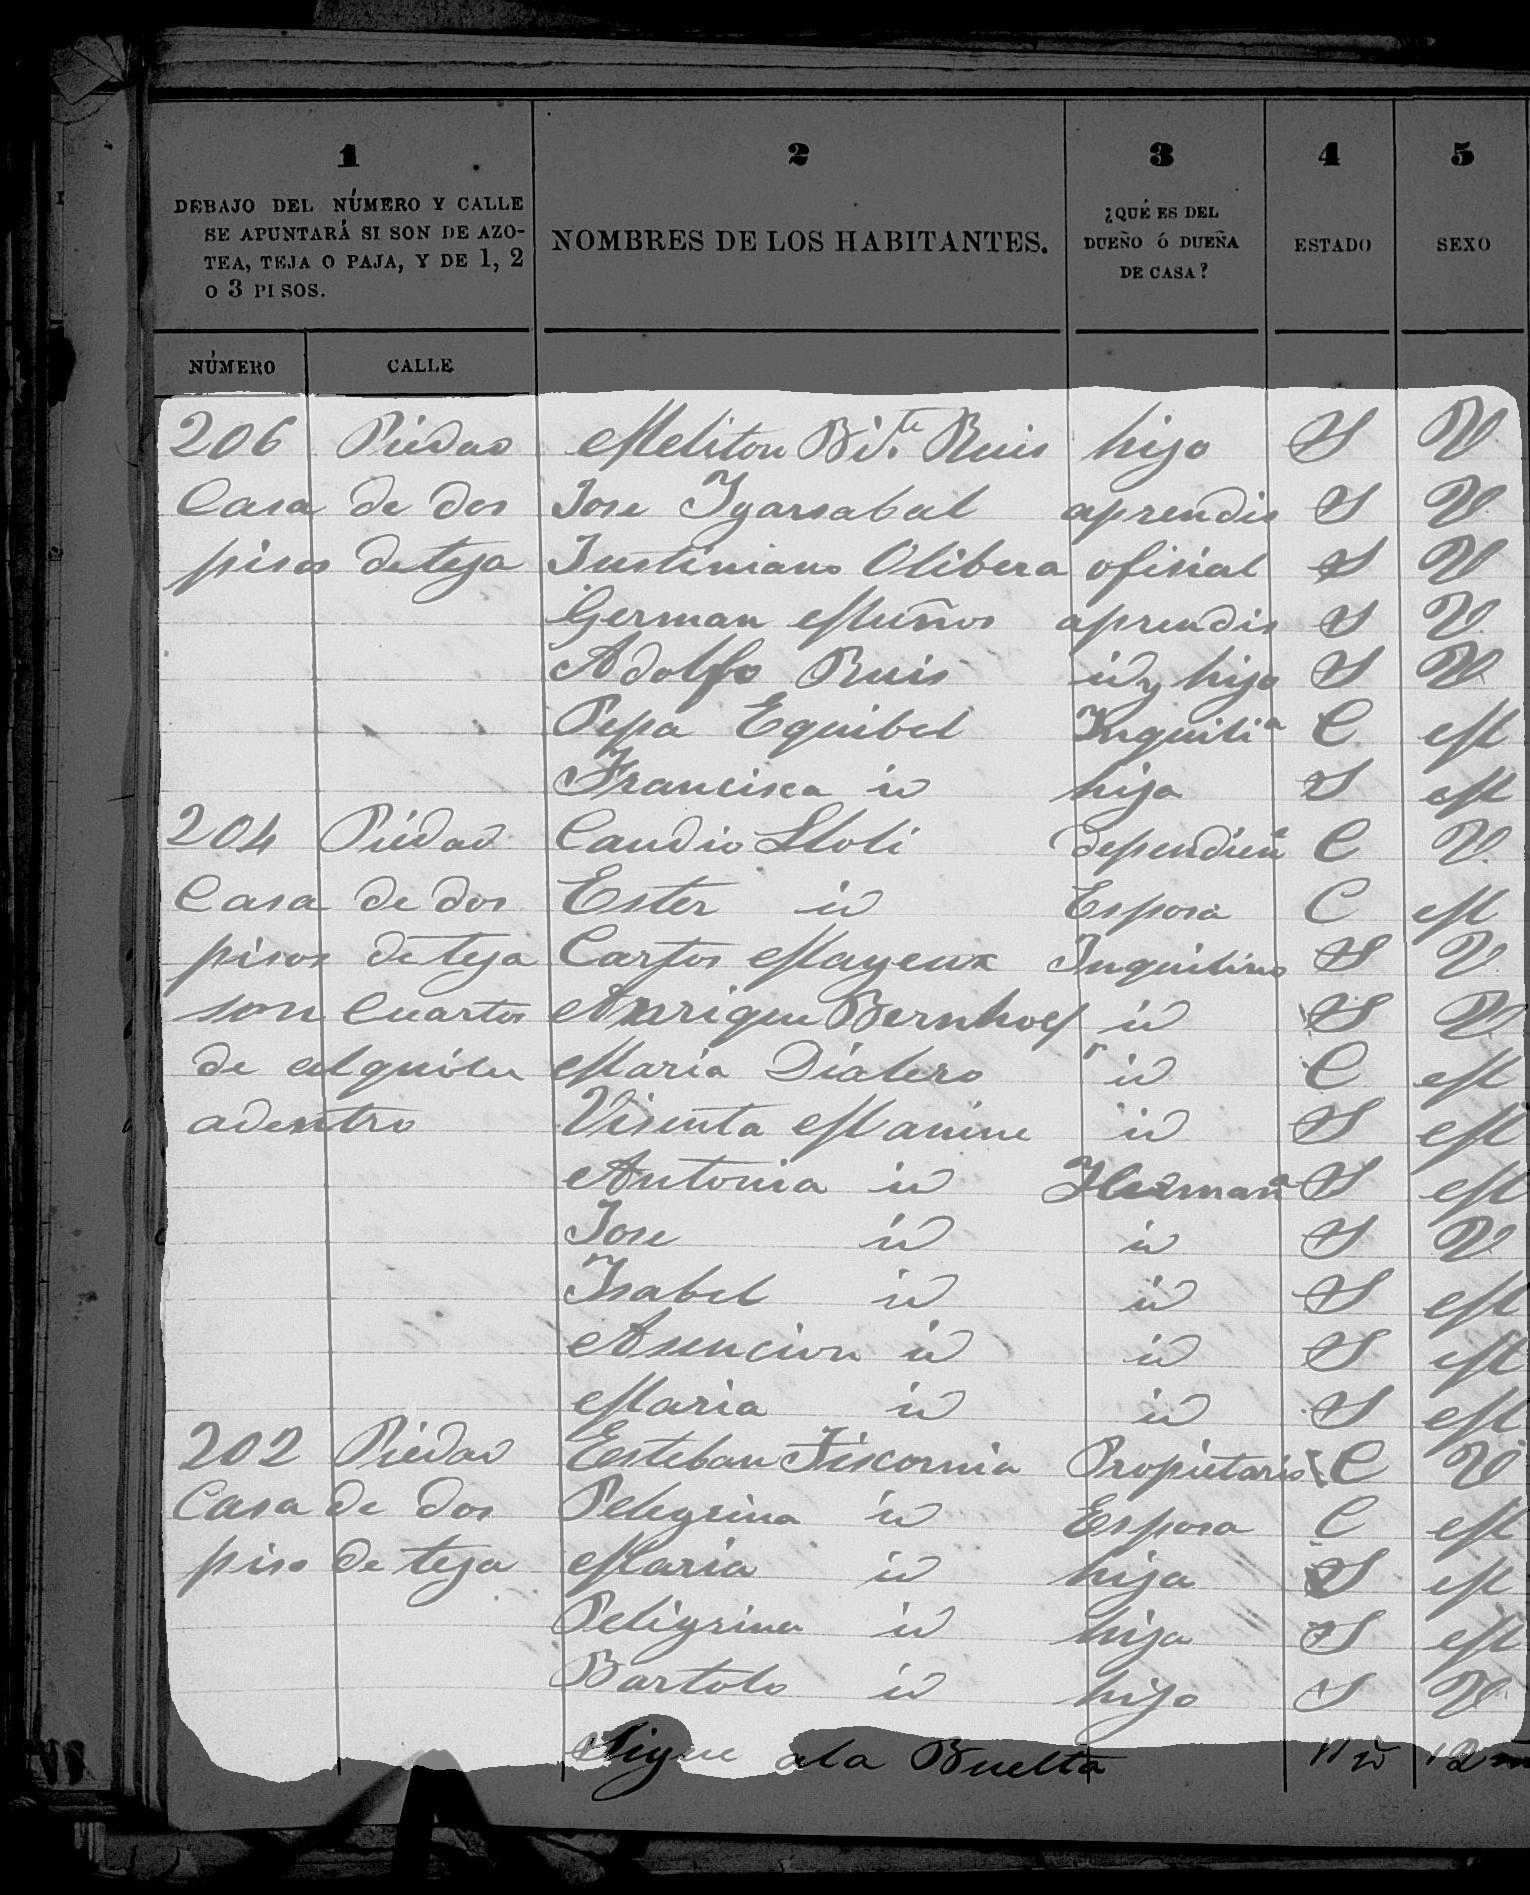 1 2 3 4 5
DEBAJO DEL NÚMERO Y CALLE
SE APUNTARÁ SI SON DE AZO-
TEA, TEJA O PAJA, Y DE 1, 2
O 3 PISOS.
NOMBRES DE LOS HABITANTES.
¿QUÉ ES DEL
DUEÑO Ó DUEÑA
DE CASA?
ESTADO
SEXO
NÚMERO CALLE
206 Piedad Meliton Bi.te Ruis hijo S V
Casa de dos Jose Ygarsabal aprendis S V
pisos de teja Justiniano Olibera ofisial S V
German Muños aprendis S V
Adolfo Ruis id y hijo S V
Pepa Equibel Inquilia C M
Francisca id hija S M
204 Piedad Claudio Stoli dependien C V
Casa de dos Ester id Esposa C M
pisos de teja Carlos Mayeux Inquilino S V
son Cuartos Anrique Bernhoef id S V
de alquiler Maria Dialero id C M
adentro Visenta Manine id S M
Antonia id Hermana S M
Jose id id S V
Isabel id id S M
Asuncion id id S M
Maria id id S M
202 Piedad Esteban Fiscornia Propietario C V
Casa de dos Pelegrina id Esposa C M
piso de teja Maria id hija S M
Peligrina id hija S M
Bartolo id hijo S V
Sigue ala Buelta 11 12